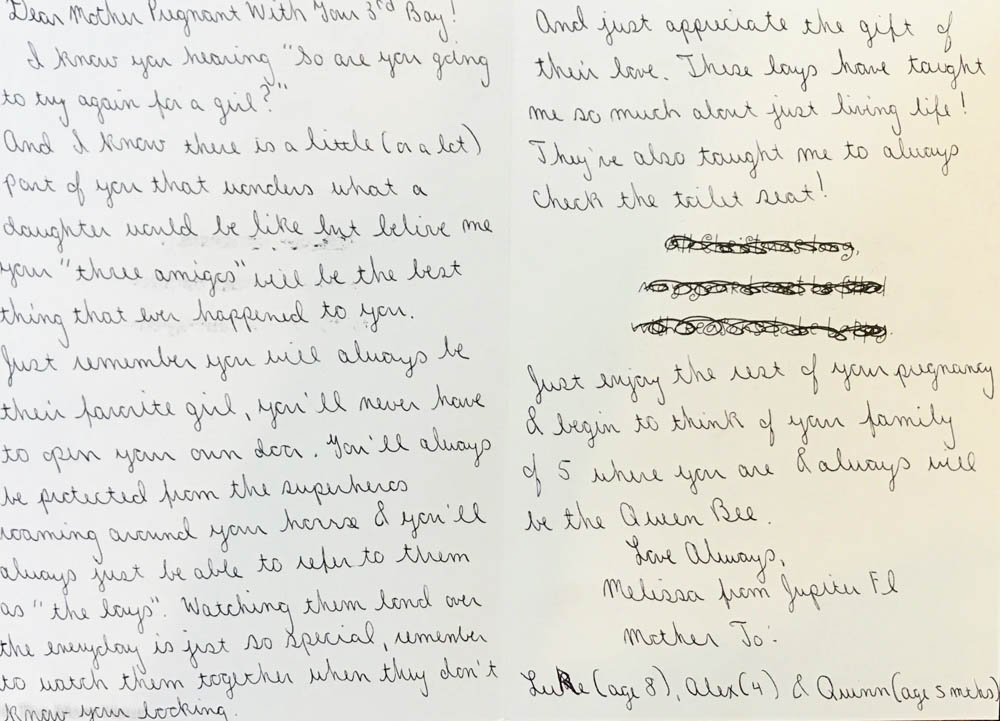 Dear Mother Pregnant With Your 3rd Boy!
I know your hearing "So are you going
to try again for a girl?"
And I know there is a little (or a lot)
part of you that wonders what a
daughter would be like but belive me
your "three amigos" will be the best
thing that ever happened to you.
Just remember you will always be
their favorite girl, you'll never have
to open your own door. You'll always
be protected from the superheros
roaming around your house & you'll
always just be able to refer to them
as "the boys". Watching them bond over
the everyday is just so special, remember
to watch them together when they don't
know your looking.
And just appriciate the gift of
their love. These boys have taught
me so much about just living life!
They've also taught me to always
check the toilet seat!
Just enjoy the rest of your pregnancy
& begin to think of your family
of 5 where you are & always will
be the Queen Bee.
Love Always,
Melissa from Jupiter Fl
Mother To:
Luke (age 8), Alex (4) & Quinn (age 5 mths)